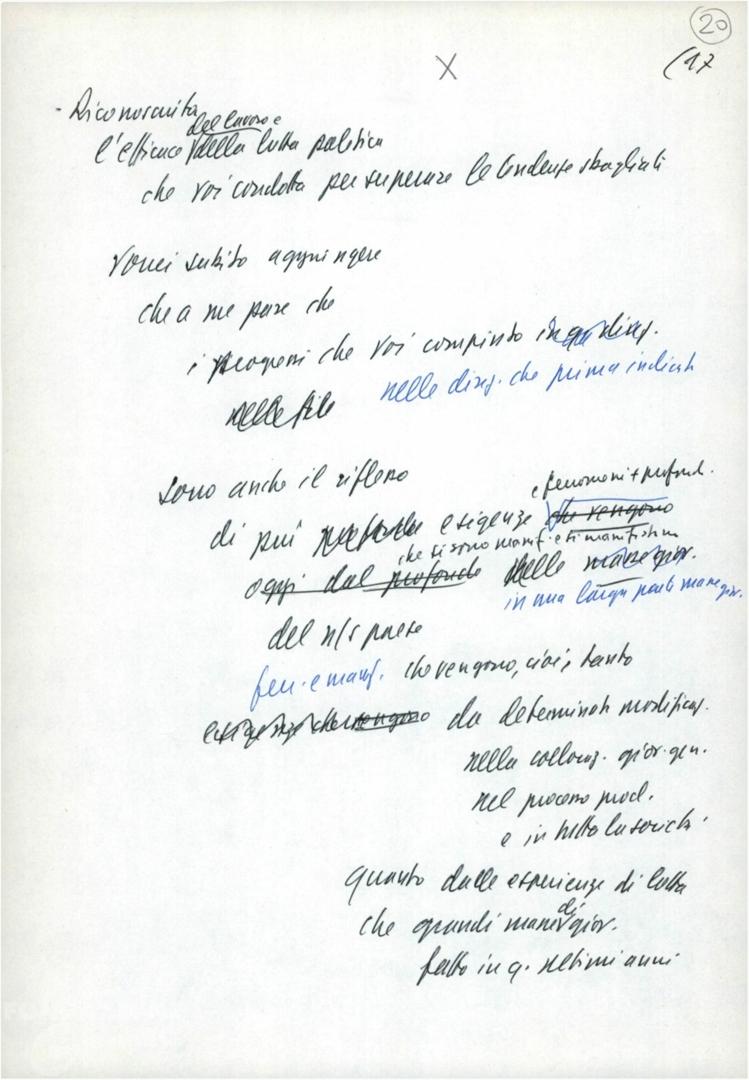 20
(17
X
- Riconosciuta
del lavoro e
l'efficace della lotta politica
che voi condotta per superare le tendenze sbagliate
Vorrei subito aggiungere
che a me pare che
i progressi che voi compiuto in q. direz.
nelle file nelle direz. che prima indicate
sono anche il riflesso
e fenomeni + profond.
di più profonde esigenze che vengono
che si sono manif. e si manifestano
oggi dal profondo delle masse giov.
in una larga parte masse giov.
del n/s paese
fen. e manif. che vengono, cioè, tanto
esigenze che vengono da determinate modificaz.
nella collocaz. giov. gen.
nel processo prod.
e in tutta la società
quanto dalle esperienze di lotta
che grandi masse di giov.
fatto in q. ultimi anni